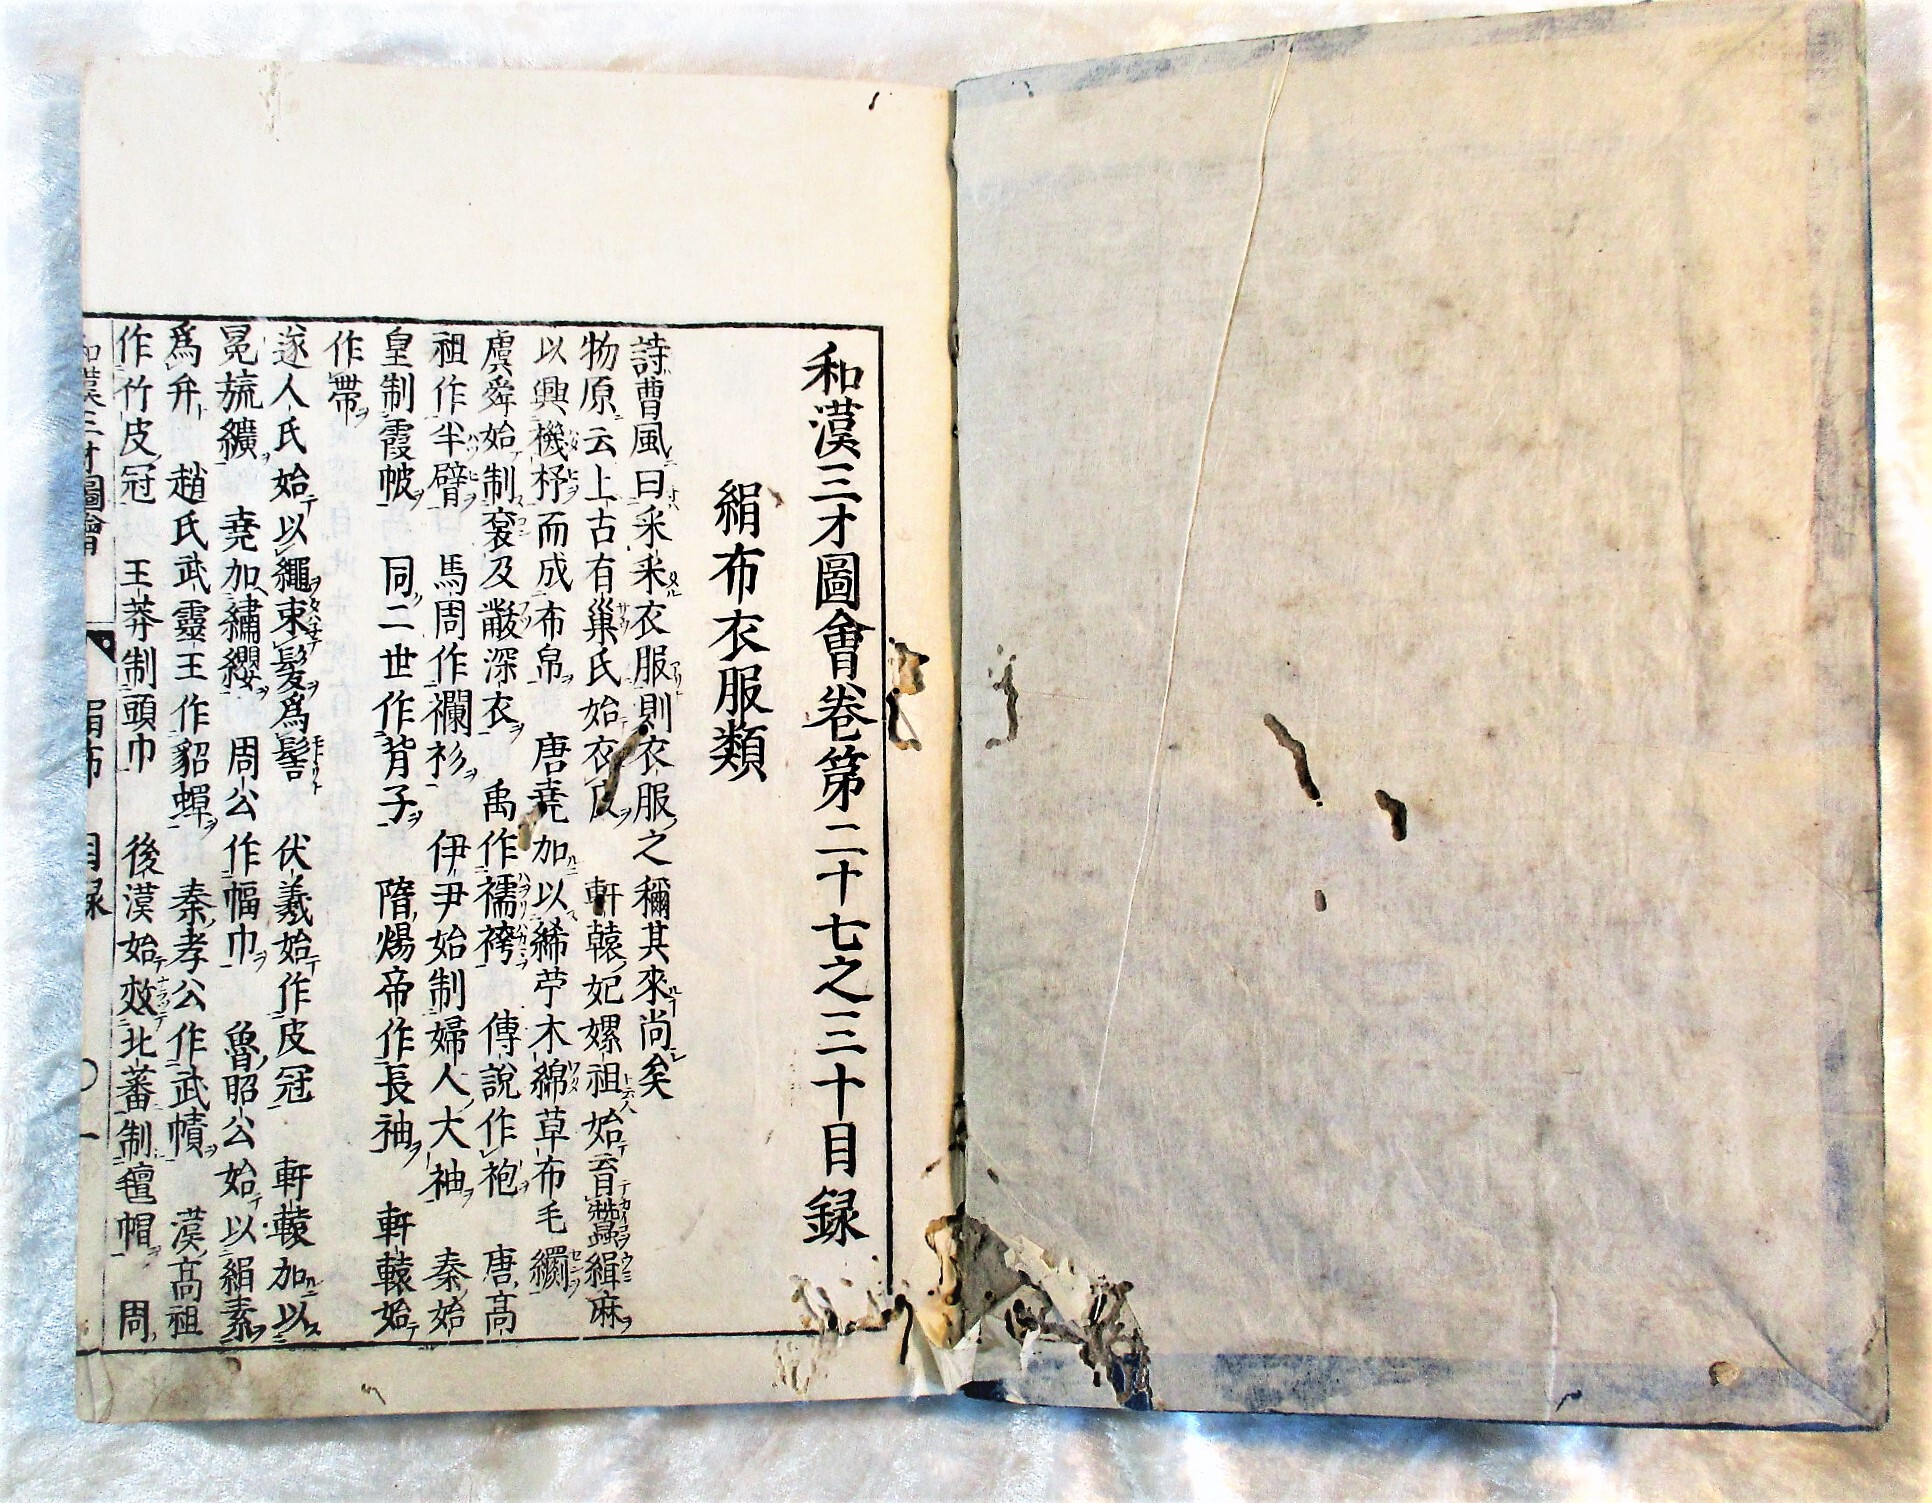 和漢三才圖會卷第二十七之三十目録
絹布衣服類
詩曹風曰采采衣服則衣服之稱其來尚矣
物原云上古有巢氏始衣皮 軒轅妃嫘祖始育蠶緝麻
以興機杼而成布帛 唐堯加以絺苧木綿草布毛𦋺
虞舜始制袞及黻深衣 禹作襦袴 傳說作袍 唐高
祖作半臂 馬周作襴衫 伊尹始制婦人大袖 秦始
皇制霞帔 同二世作背子 隋煬帝作長袖 軒轅始
作帶
遂人氏始以繩束髮爲髻 伏羲始作皮冠 軒轅加以
冕旒纊 堯加繡纓 周公作幅巾 魯昭公始以絹素
爲弁 趙氏武靈王作貂蟬 秦孝公作武幘 漢高祖
作竹皮冠 王莽制頭巾 後漢始效北蕃制氊帽 周
和漢三才圖會 絹布 目録 〇一